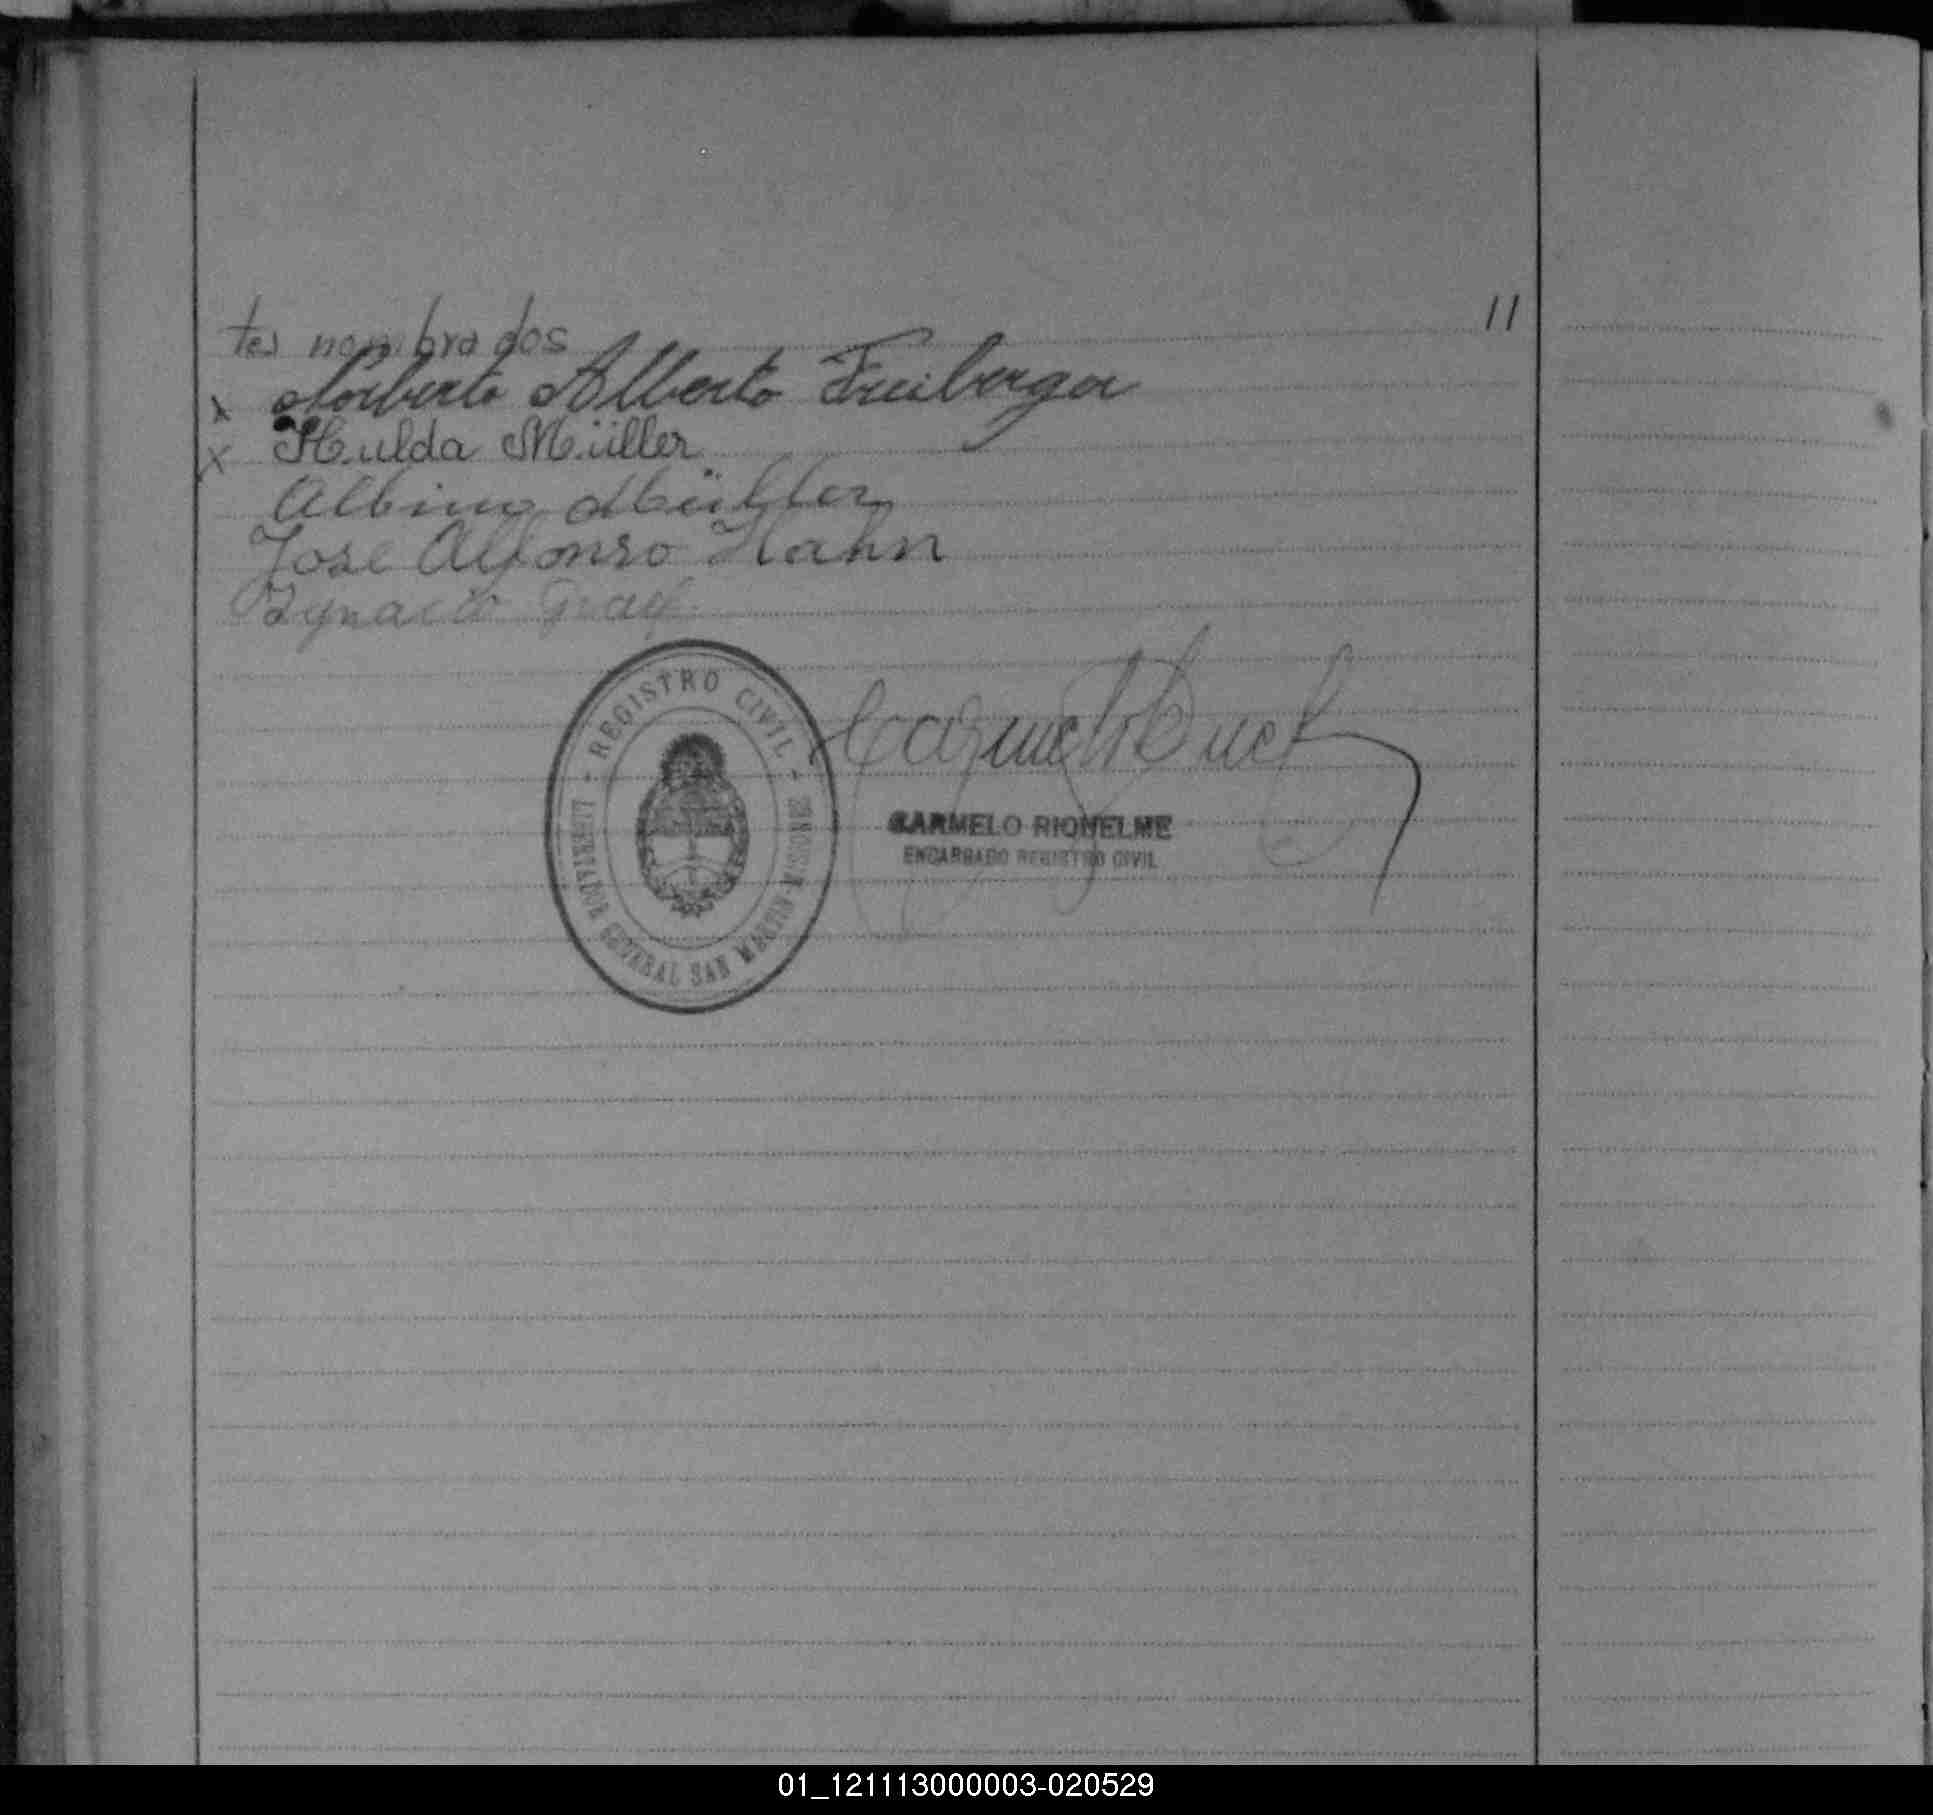 11
tes nombrados
x Norberto Alberto Freiberger
x Hulda Müller
Albino Müller
Jose Alfonso Hahn
Ygnacio Graef
- REGISTRO CIVIL -
LIBERTADOR GENERAL SAN MARTIN MISIONES
CARMELO RIQUELME
ENCARGADO REGISTRO CIVIL
01_121113000003-020529